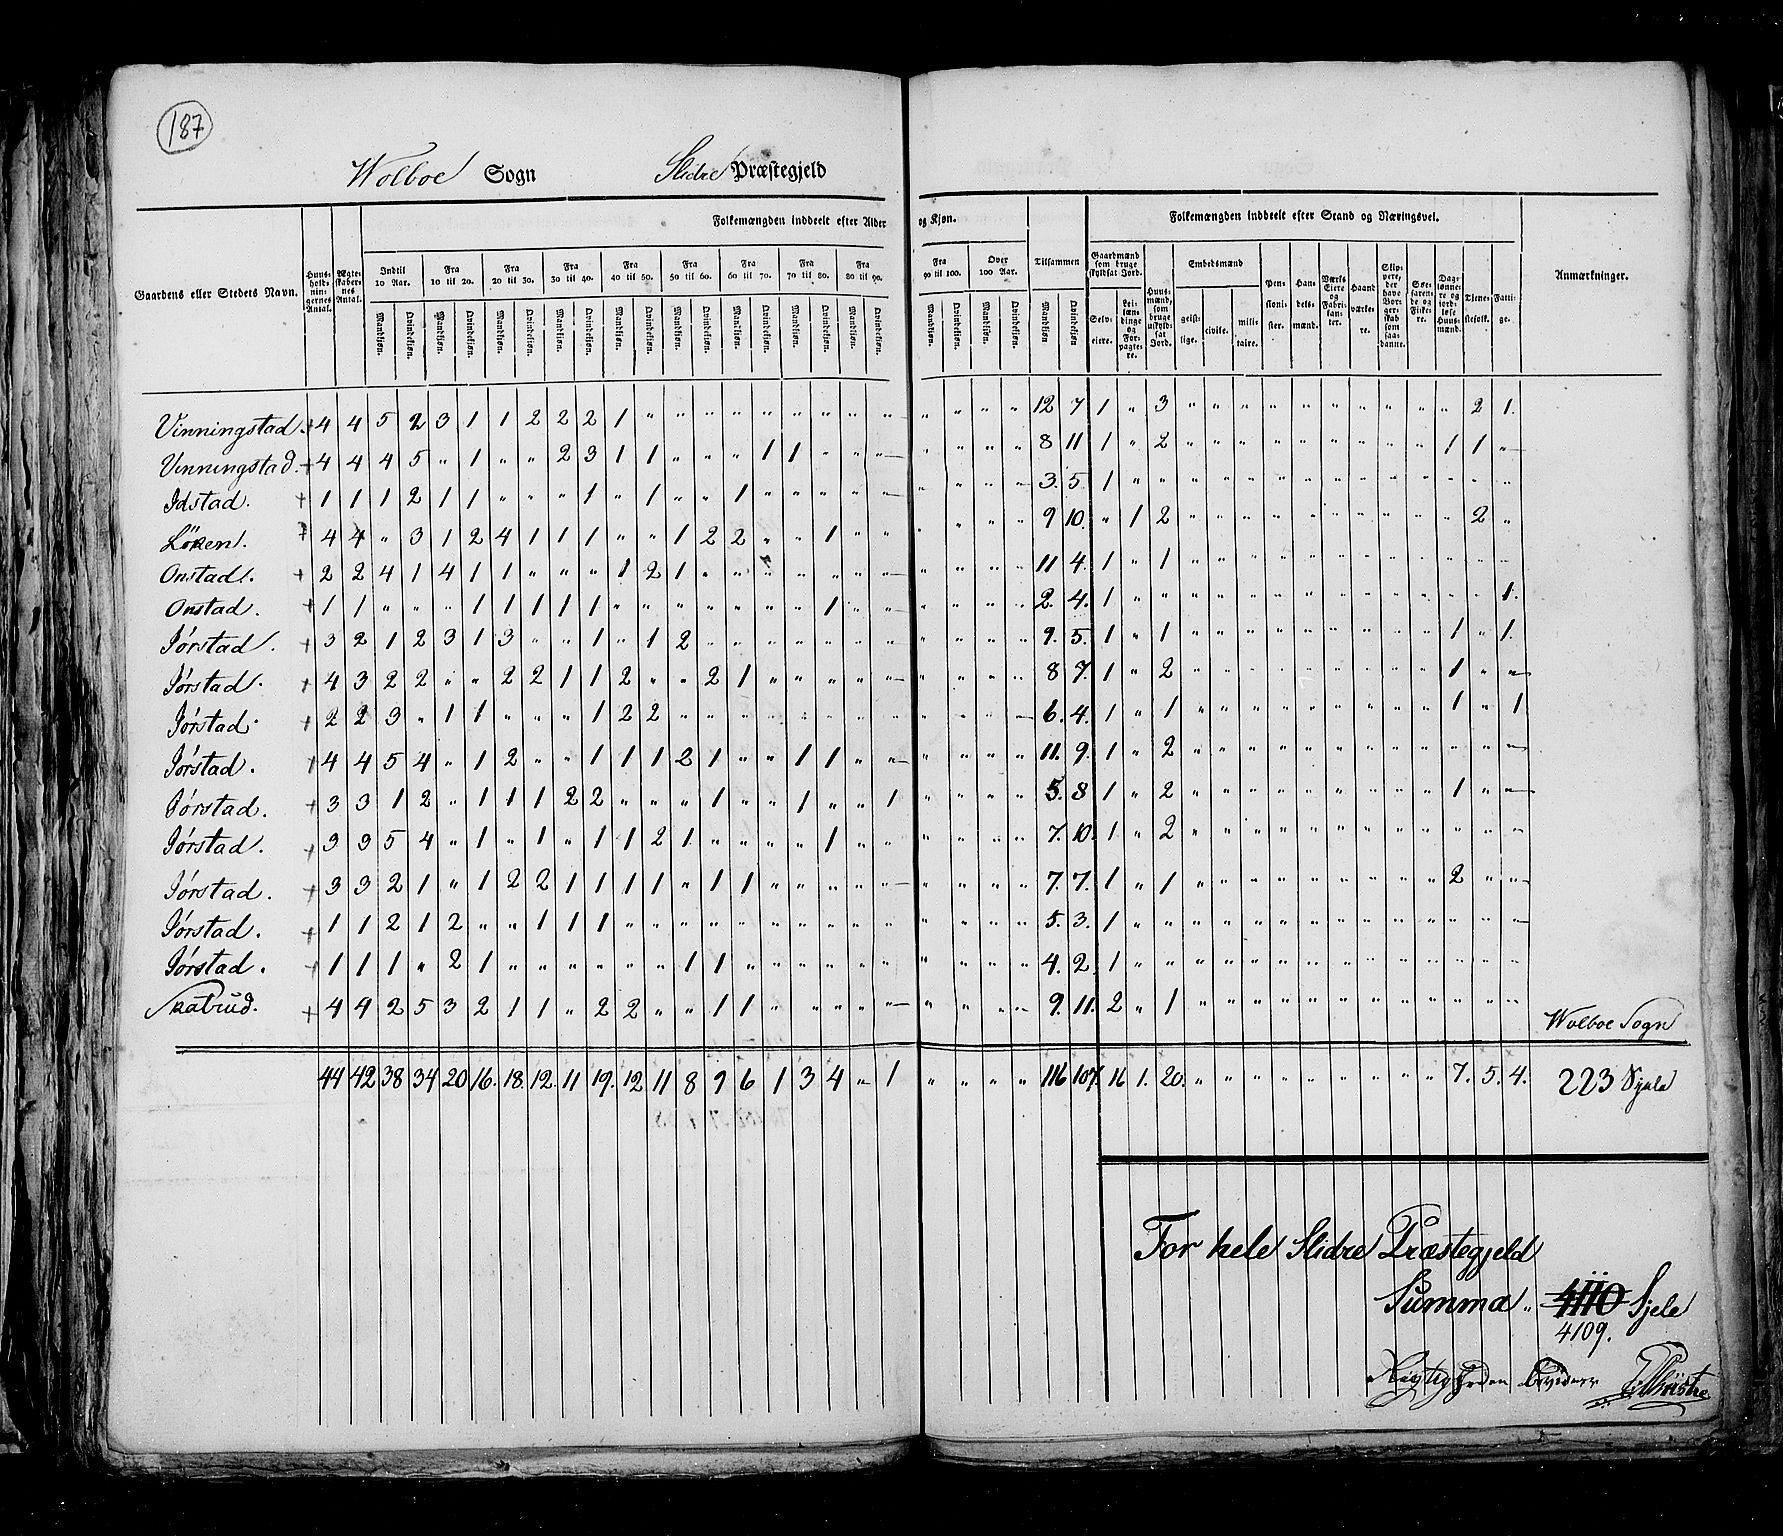 187
Wolboe Sogn Slidre Præstegjeld
Folkemængden inddeelt efter Alder og Kjøn. Folkemængden inddeelt efter Stand og Næringsvei.
Gaardens eller Stedets Navn. Huusholdningernes Antal. Ægteskabernes Antal. Indtil 10 Aar. Fra 10 til 20. Fra 20 til 30. Fra 30 til 40. Fra 40 til 50. Fra 50 til 60. Fra 60 til 70. Fra 70 til 80. Fra 80 til 90. Fra 90 til 100. Over 100 Aar. Tilsammen Gaardmænd som bruge skyldsat Jord. Huusmænd, som bruge uskyldsat Jord. Embedsmænd Pensionister. Handelsmænd. Værks Eiere og Fabrikanter. Haandværkere. Skippere, der have Borgerskab som saadanne. Søefarende og Fiskere. Daglønnere og jordløse Huusmænd. Tjenestefolk. Fattige. Anmærkninger.
Mandkjøn. Qvindekjøn. Mandkjøn. Qvindekjøn. Mandkjøn. Qvindekjøn. Mandkjøn. Qvindekjøn. Mandkjøn. Qvindekjøn. Mandkjøn. Qvindekjøn. Mandkjøn. Qvindekjøn. Mandkjøn. Qvindekjøn. Mandkjøn. Qvindekjøn. Mandkjøn. Qvindekjøn. Mandkjøn. Qvindekjøn. Mandkjøn Qvindekjøn Selveiere. Leilændinge og Forpagtere. geistlige. civile. militaire.
Vinningstad. + 4 4 5 2 3 1 1 2 2 2 1 " " " " " " " " " " " " " 12 7 1 " 3 " " " " " " " " " " " 2 1.
Vinningstad. + 4 4 4 5 " 1 " " 2 3 1 1 " " " 1 1 " " " " " " " 8 11 1 " 2 " " " " " " " " " " 1 1 "
Idstad. + 1 1 1 2 1 1 " " " 1 " 1 " " 1 " " " " " " " " " 3. 5. 1 " " " " " " " " " " " " " " "
Löken. + 4 4 " 3 1 2 4 1 1 1 " " 1 2 2 " " 1 " " " " " " 9 10. " 1 2 " " " " " " " " " " " 2 "
Onstad. + 2 2 4 1 4 1 1 " " " 1 2 1 " " " " " " " " " " " 11 4. 1 " 1 " " " " " " " " " " " " "
Onstad. + 1 1 " " " 1 1 1 1 1 " " " " " " " 1 " " " " " " 2. 4. 1 " " " " " " " " " " " " " " 1.
Jørstad. + 3 2 1 2 3 1 3 " " 1 " 1 2 " " " " " " " " " " " 9. 5. 1 " 1 " " " " " " " " " " 1 " 1.
Jørstad. + 4 3 2 2 " " 2 2 1 1 2 " " 2 1 " " " " " " " " " 8 7. 1 " 2 " " " " " " " " " " 1 " "
Jørstad. + 2 2 3 " 1 1 " " " 1 2 2 " " " " " " " " " " " " 6. 4. 1 " 1 " " " " " " " " " " 1 " 1
Jørstad. + 4 4 5 4 " 1 2 " " 1 1 1 2 1 " " 1 1 " " " " " " 11. 9. 1 " 2 " " " " " " " " " " " " "
Jørstad. + 3 3 1 2 " 1 1 1 2 2 " " " 1 " " 1 " " 1 " " " " 5. 8 1 " 2 " " " " " " " " " " 1 " "
Jørstad. + 3 3 5 4 " 1 " 1 " 1 1 2 1 " " " " 1 " " " " " " 7. 10. 1 " 2 " " " " " " " " " " " " "
Jørstad. + 3 3 2 1 " 1 2 2 1 1 1 1 " 1 1 " " " " " " " " " 7. 7. 1 " 1 " " " " " " " " " " 2 " "
Jørstad. + 1 1 2 1 2 " " 1 1 1 " " " " " " " " " " " " " " 5. 3. 1 " " " " " " " " " " " " " " "
Jørstad. + 1 1 1 " 2 1 " " " " " " 1 1 " " " " " " " " " " 4. 2. 1 " " " " " " " " " " " " " " "
Skatrud. + 4 4 2 5 3 2 1 1 " 2 2 " " 1 1 " " " " " " " " " 9. 11. 2 " 1 " " " " " " " " " " " " " Wolboe Sogn
44 42 38 34 20 16. 18. 12. 11 19. 12 11 8 9 6 1 3 4 " 1 " " " " 116 107. 16 1. 20. " " " " " " " " " " 7. 5. 4. 223 Sjele
For hele Slidre Præstegjeld
Summa " 4110 Sjele
4109.
Rigtigheden bevidner